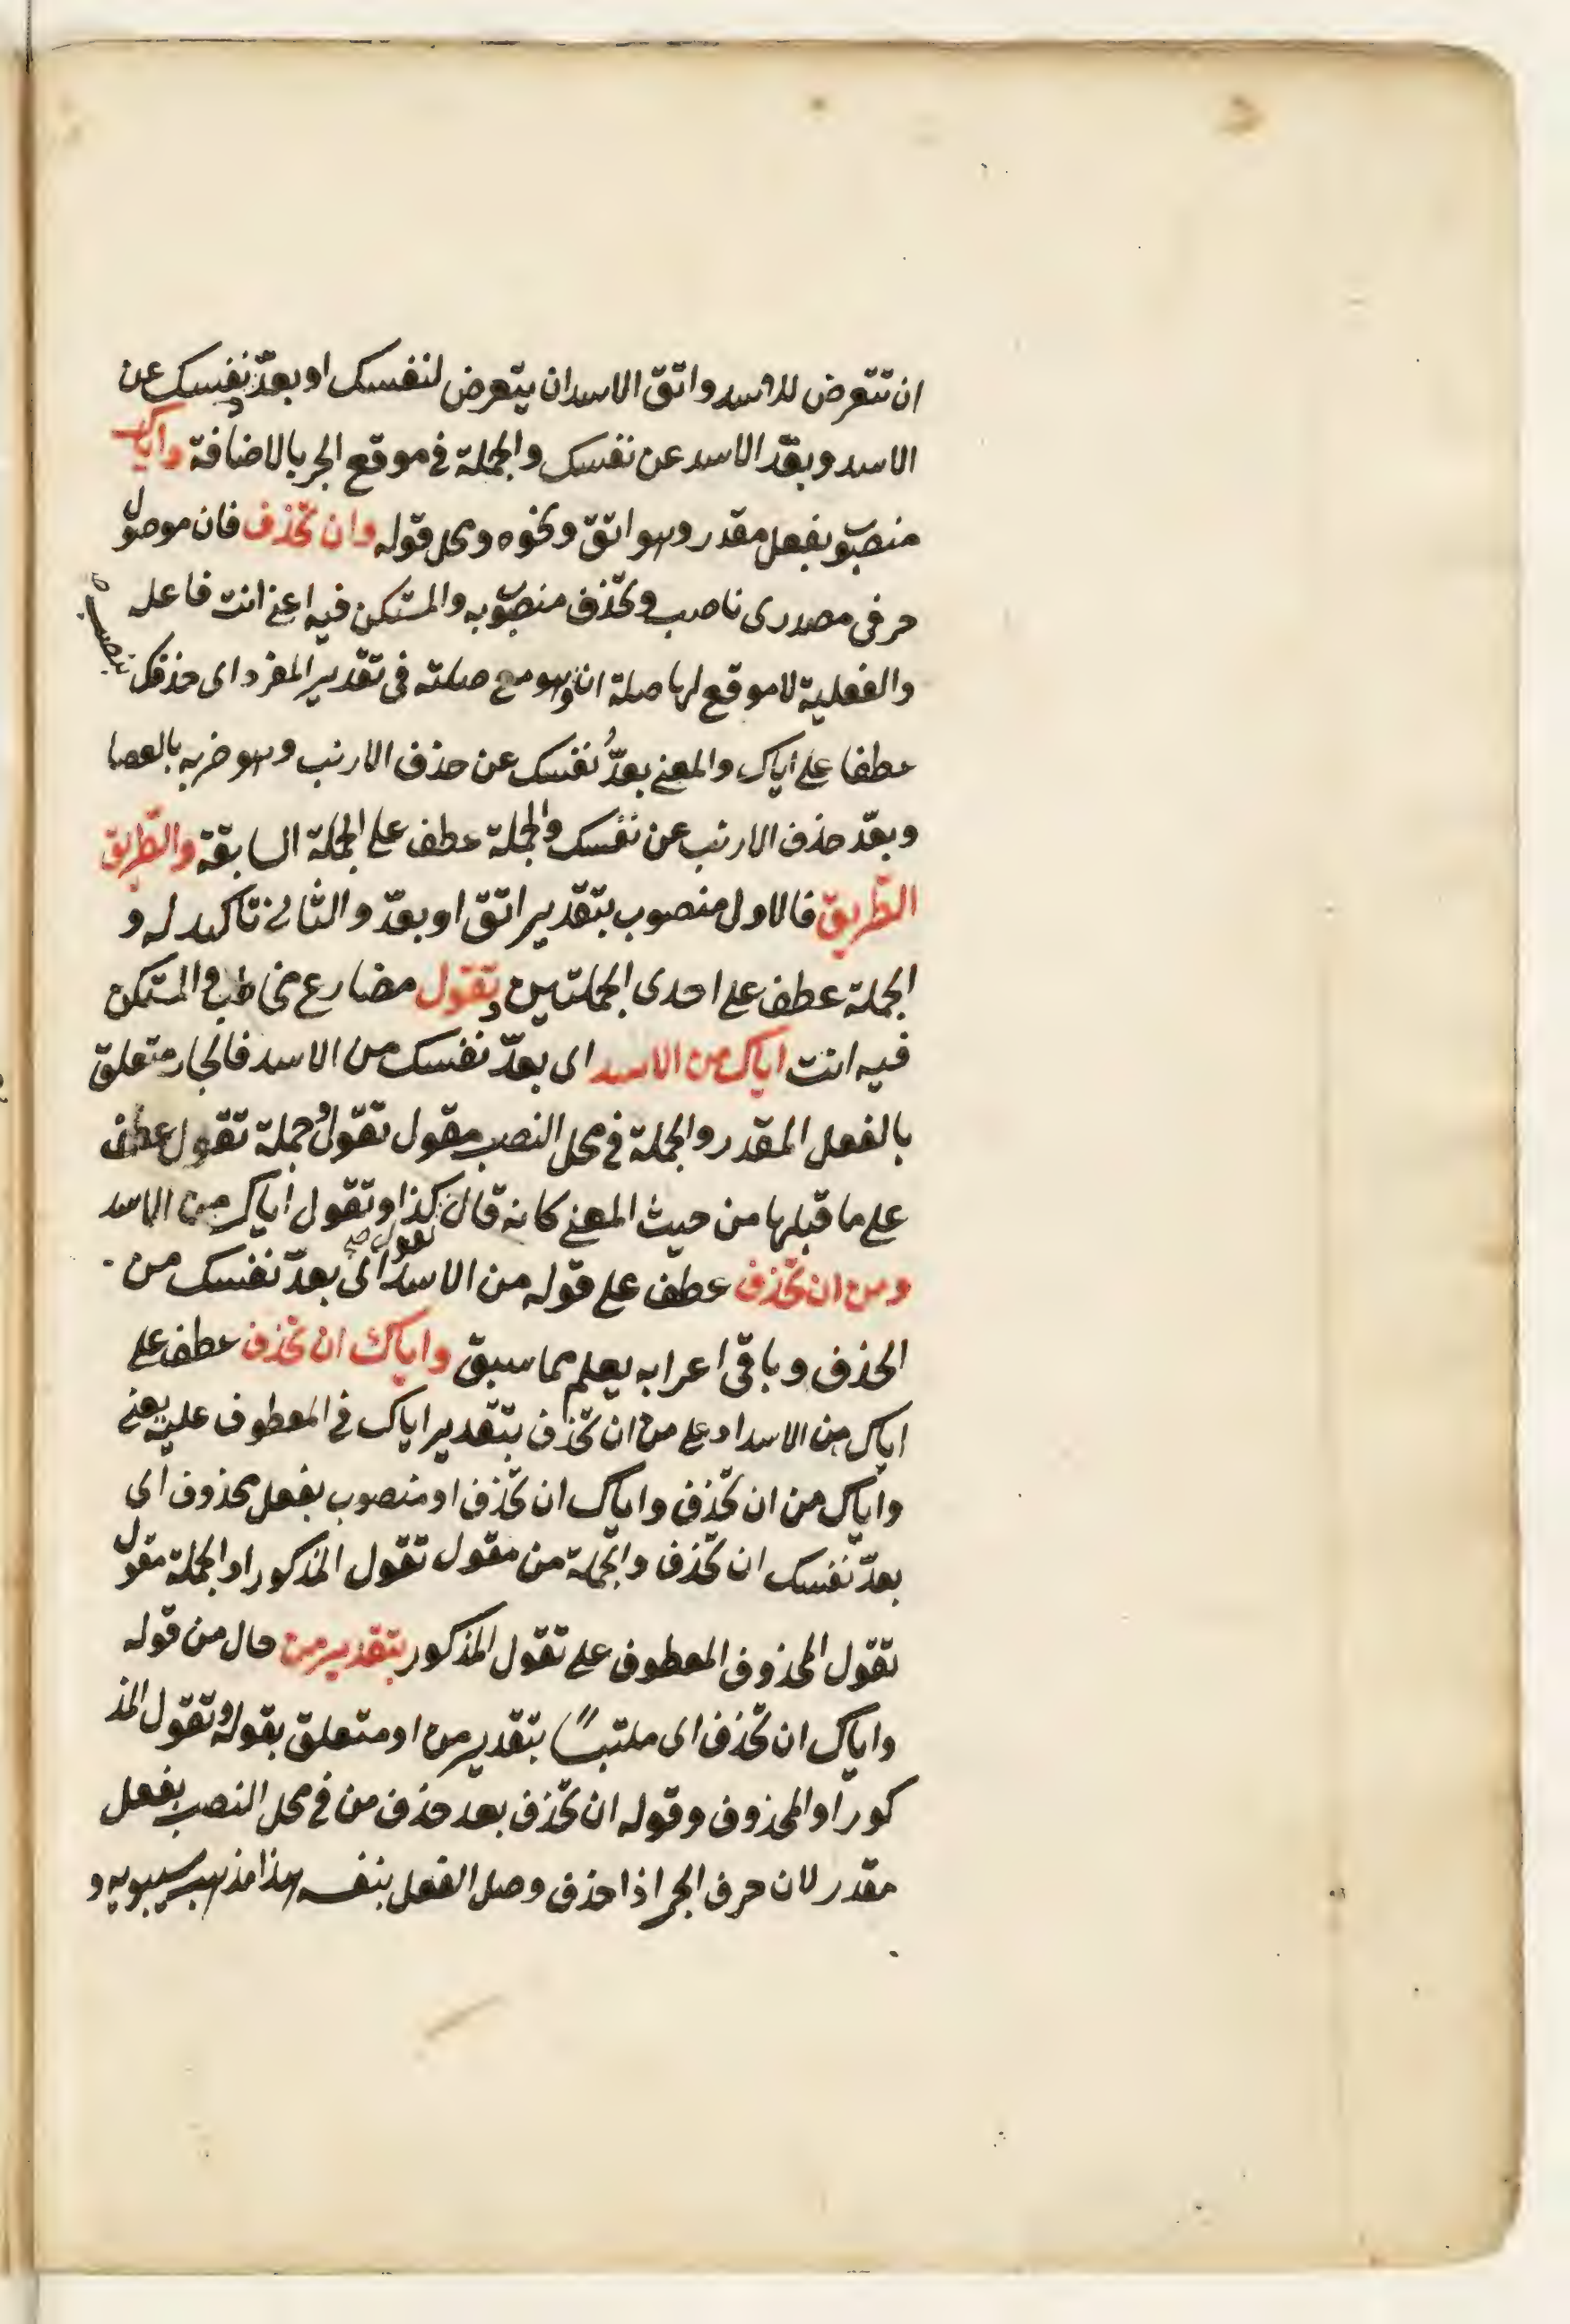 ان تتعرض للاسد واتق الاسد ان يتعرض لنفسك او بعدّ نفسك عن
الاسد وبعّد الاسد عن نفسك والجملة في موقع الجر بالاضافة واياك
منصوب بفعل مقدر وهو اتق ونحوه ومحل قوله وان تحذف فان موصول
حرفى مصدرى ناصب وتحذف منصوب به والمستكن فيه اعنى انت فاعله
والفعلية لا موقع لها صلة ان وهو مع صلته فى تقدير المفرد اى حذفك
عطفا على اياك والمعنى بعدّ نفسك عن حذف الارنب وهو ضربه بالعصا
وبعّد حذف الارنب عن نفسك والجملة عطف على الجملة السابقة والطريق
الطريق فالاول منصوب بتقدير اتق او بعدّ والثانى تاكيد له و
الجملة عطف على احدى الجملتين وتقول مضارع مخاطب والمستكن
فيه انت اياك من الاسد اى بعدّ نفسك من الاسد فالجار متعلق
بالفعل المقدر والجملة فى محل النصب مقول تقول وجملة تقول عطف
على ما قبلها من حيث المعنى كانه قال تقول كذا وتقول اياك من الاسد
ومن ان تحذف عطف على قوله من الاسد اى بعدّ نفسك من
الحذف وباقى اعرابه يعلم مما سبق واياك ان تحذف عطف على
اياك من الاسد او على من ان تحذف بتقدير اياك فى المعطوف عليه يعنى
واياك من ان تحذف واياك ان تحذف او منصوب بفعل محذوف اى
بعدّ نفسك ان تحذف والجملة من مقول تقول المذكور او الجملة مقول
تقول المحذوف المعطوف على تقول المذكور بتقدير من حال من قوله
واياك ان تحذف اى ملتبسًا بتقدير من او متعلق بقوله وتقول المذ
كور او المحذوف وقوله ان تحذف بعد حذف من فى محل النصب بفعل
مقدر لان حرف الجر اذا حذف وصل الفعل بنفسه هذا مذهب سيبويه و